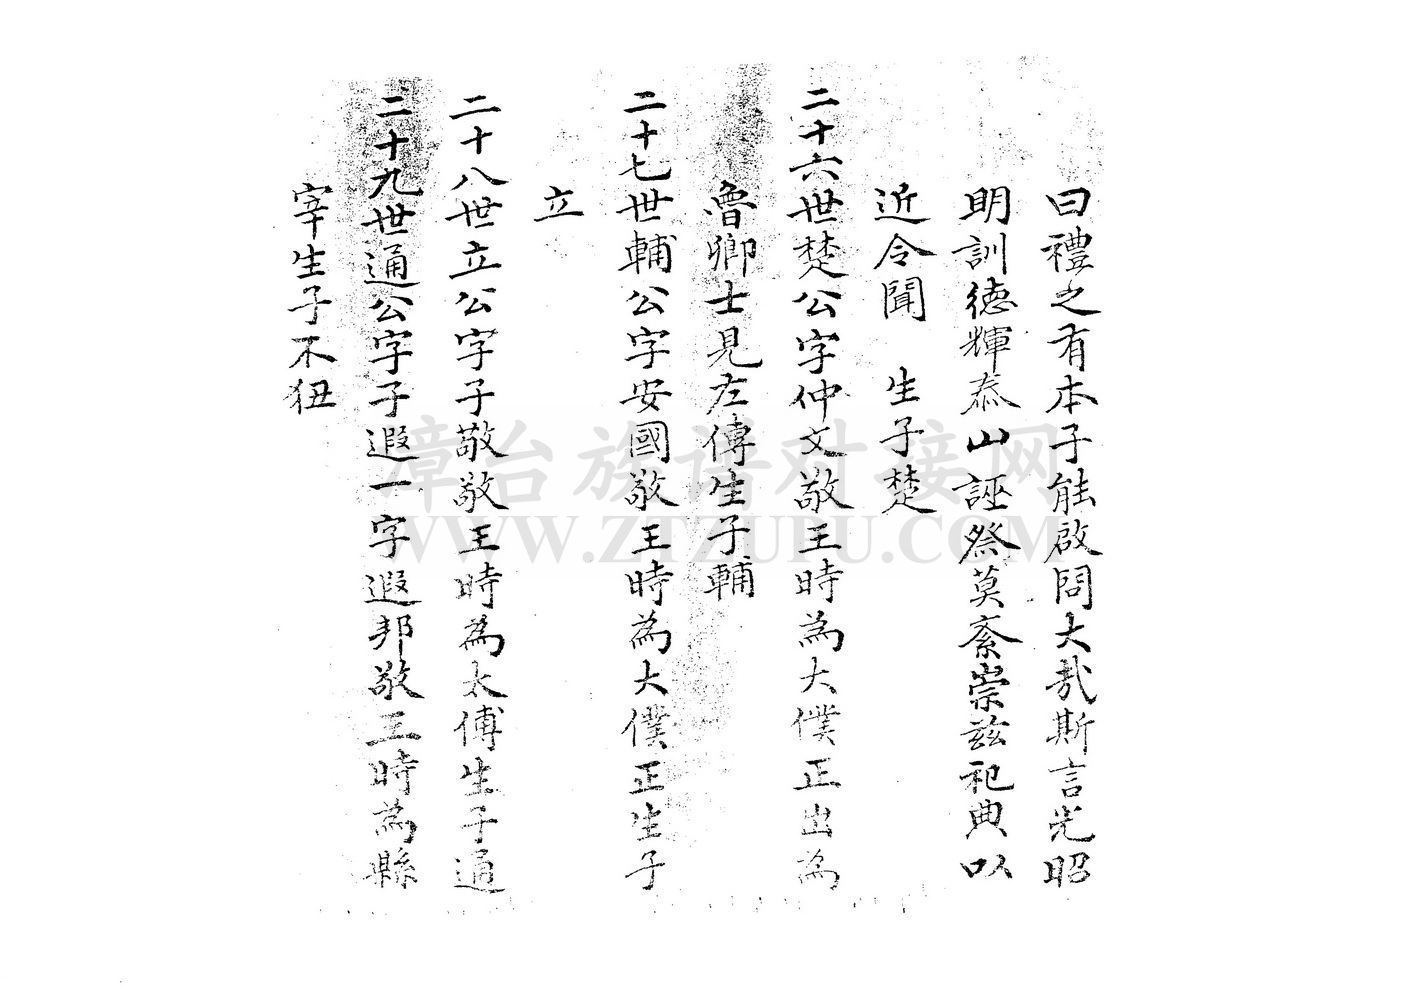 曰禮之有本子能啟問大哉斯言光昭
明訓德輝泰山誣祭莫紊崇玆祀典以
近令聞　生子楚
二十六世楚公字仲文敬王時為大僕正出為
魯卿士見左傳生子輔
二十七世輔公字安國敬王時為大僕正生子
立
二十八世立公字子敬敬王時為太傅生子通
二十九世通公字子遐一字遐邦敬王時為縣
宰生子不狃
漳台族谱对接网
WWW.ZTZUPU.COM